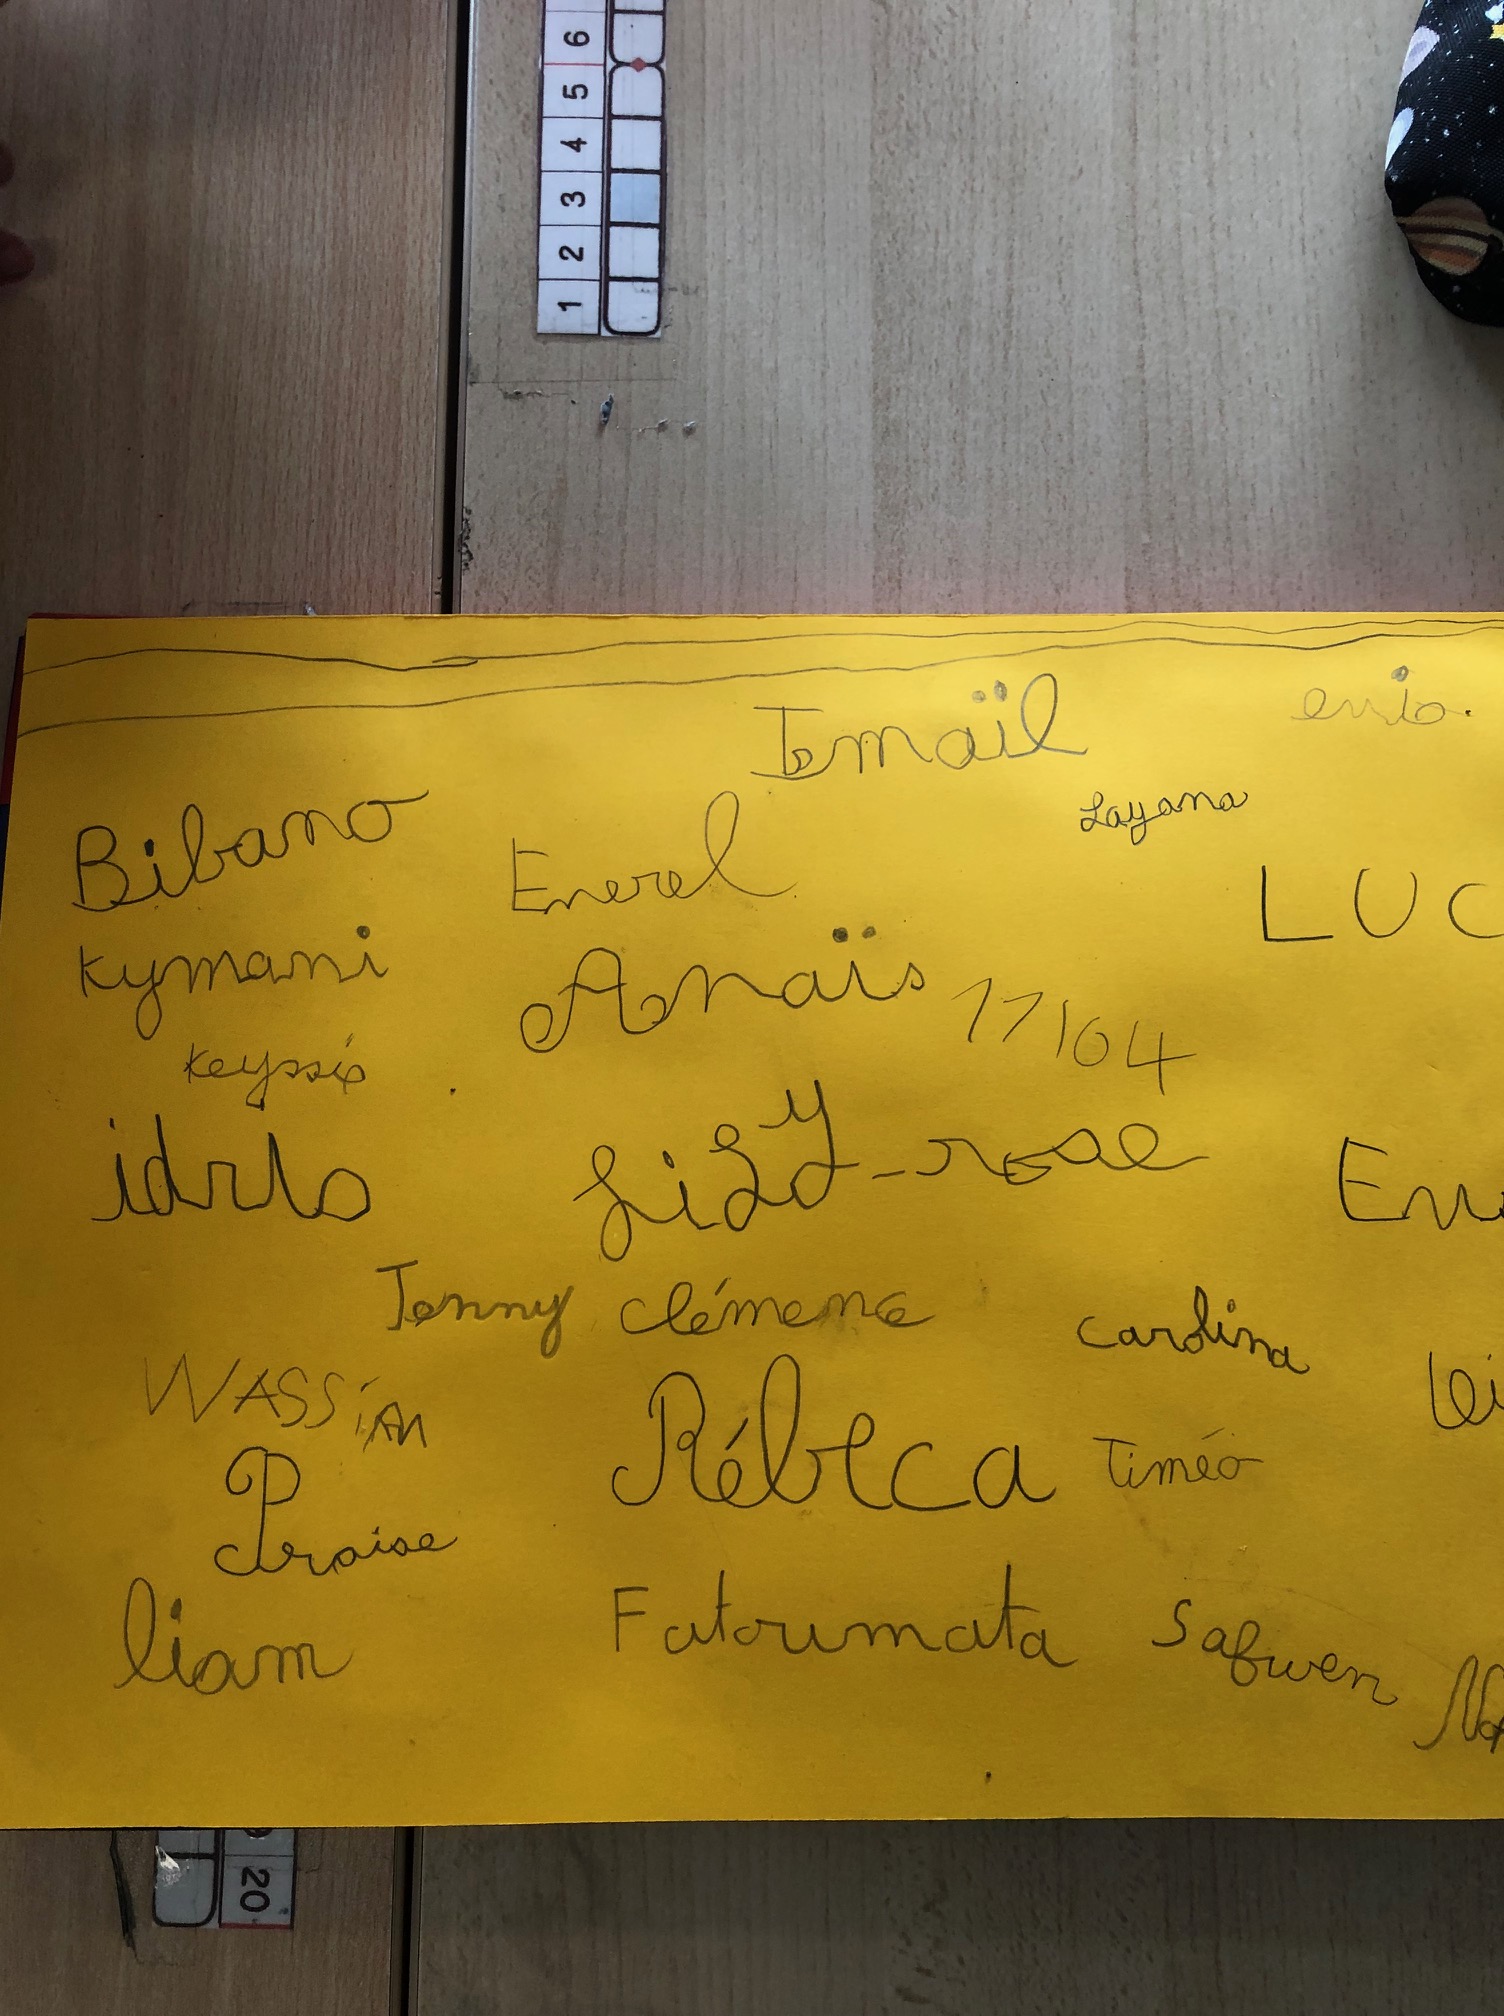 6
5
4
3
2
1
Ismaïl
Layana
Bibano
Enerel
LUC
Kymani
Anaïs 17/04
Keyssis
idris
Lizzy-rose
Jenny clémence
carolina
WASSim
Rébeca Timéo
Praise
liam
Fatoumata Safwen
20